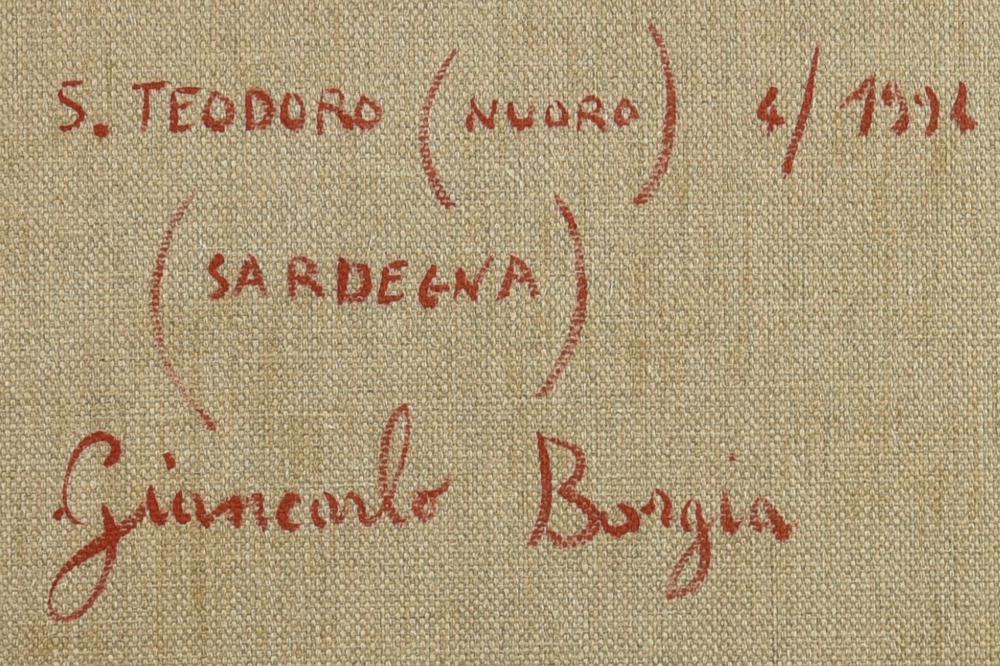 S. TEODORO (NUORO) 4/1991
(SARDEGNA)
Giancarlo Borgia